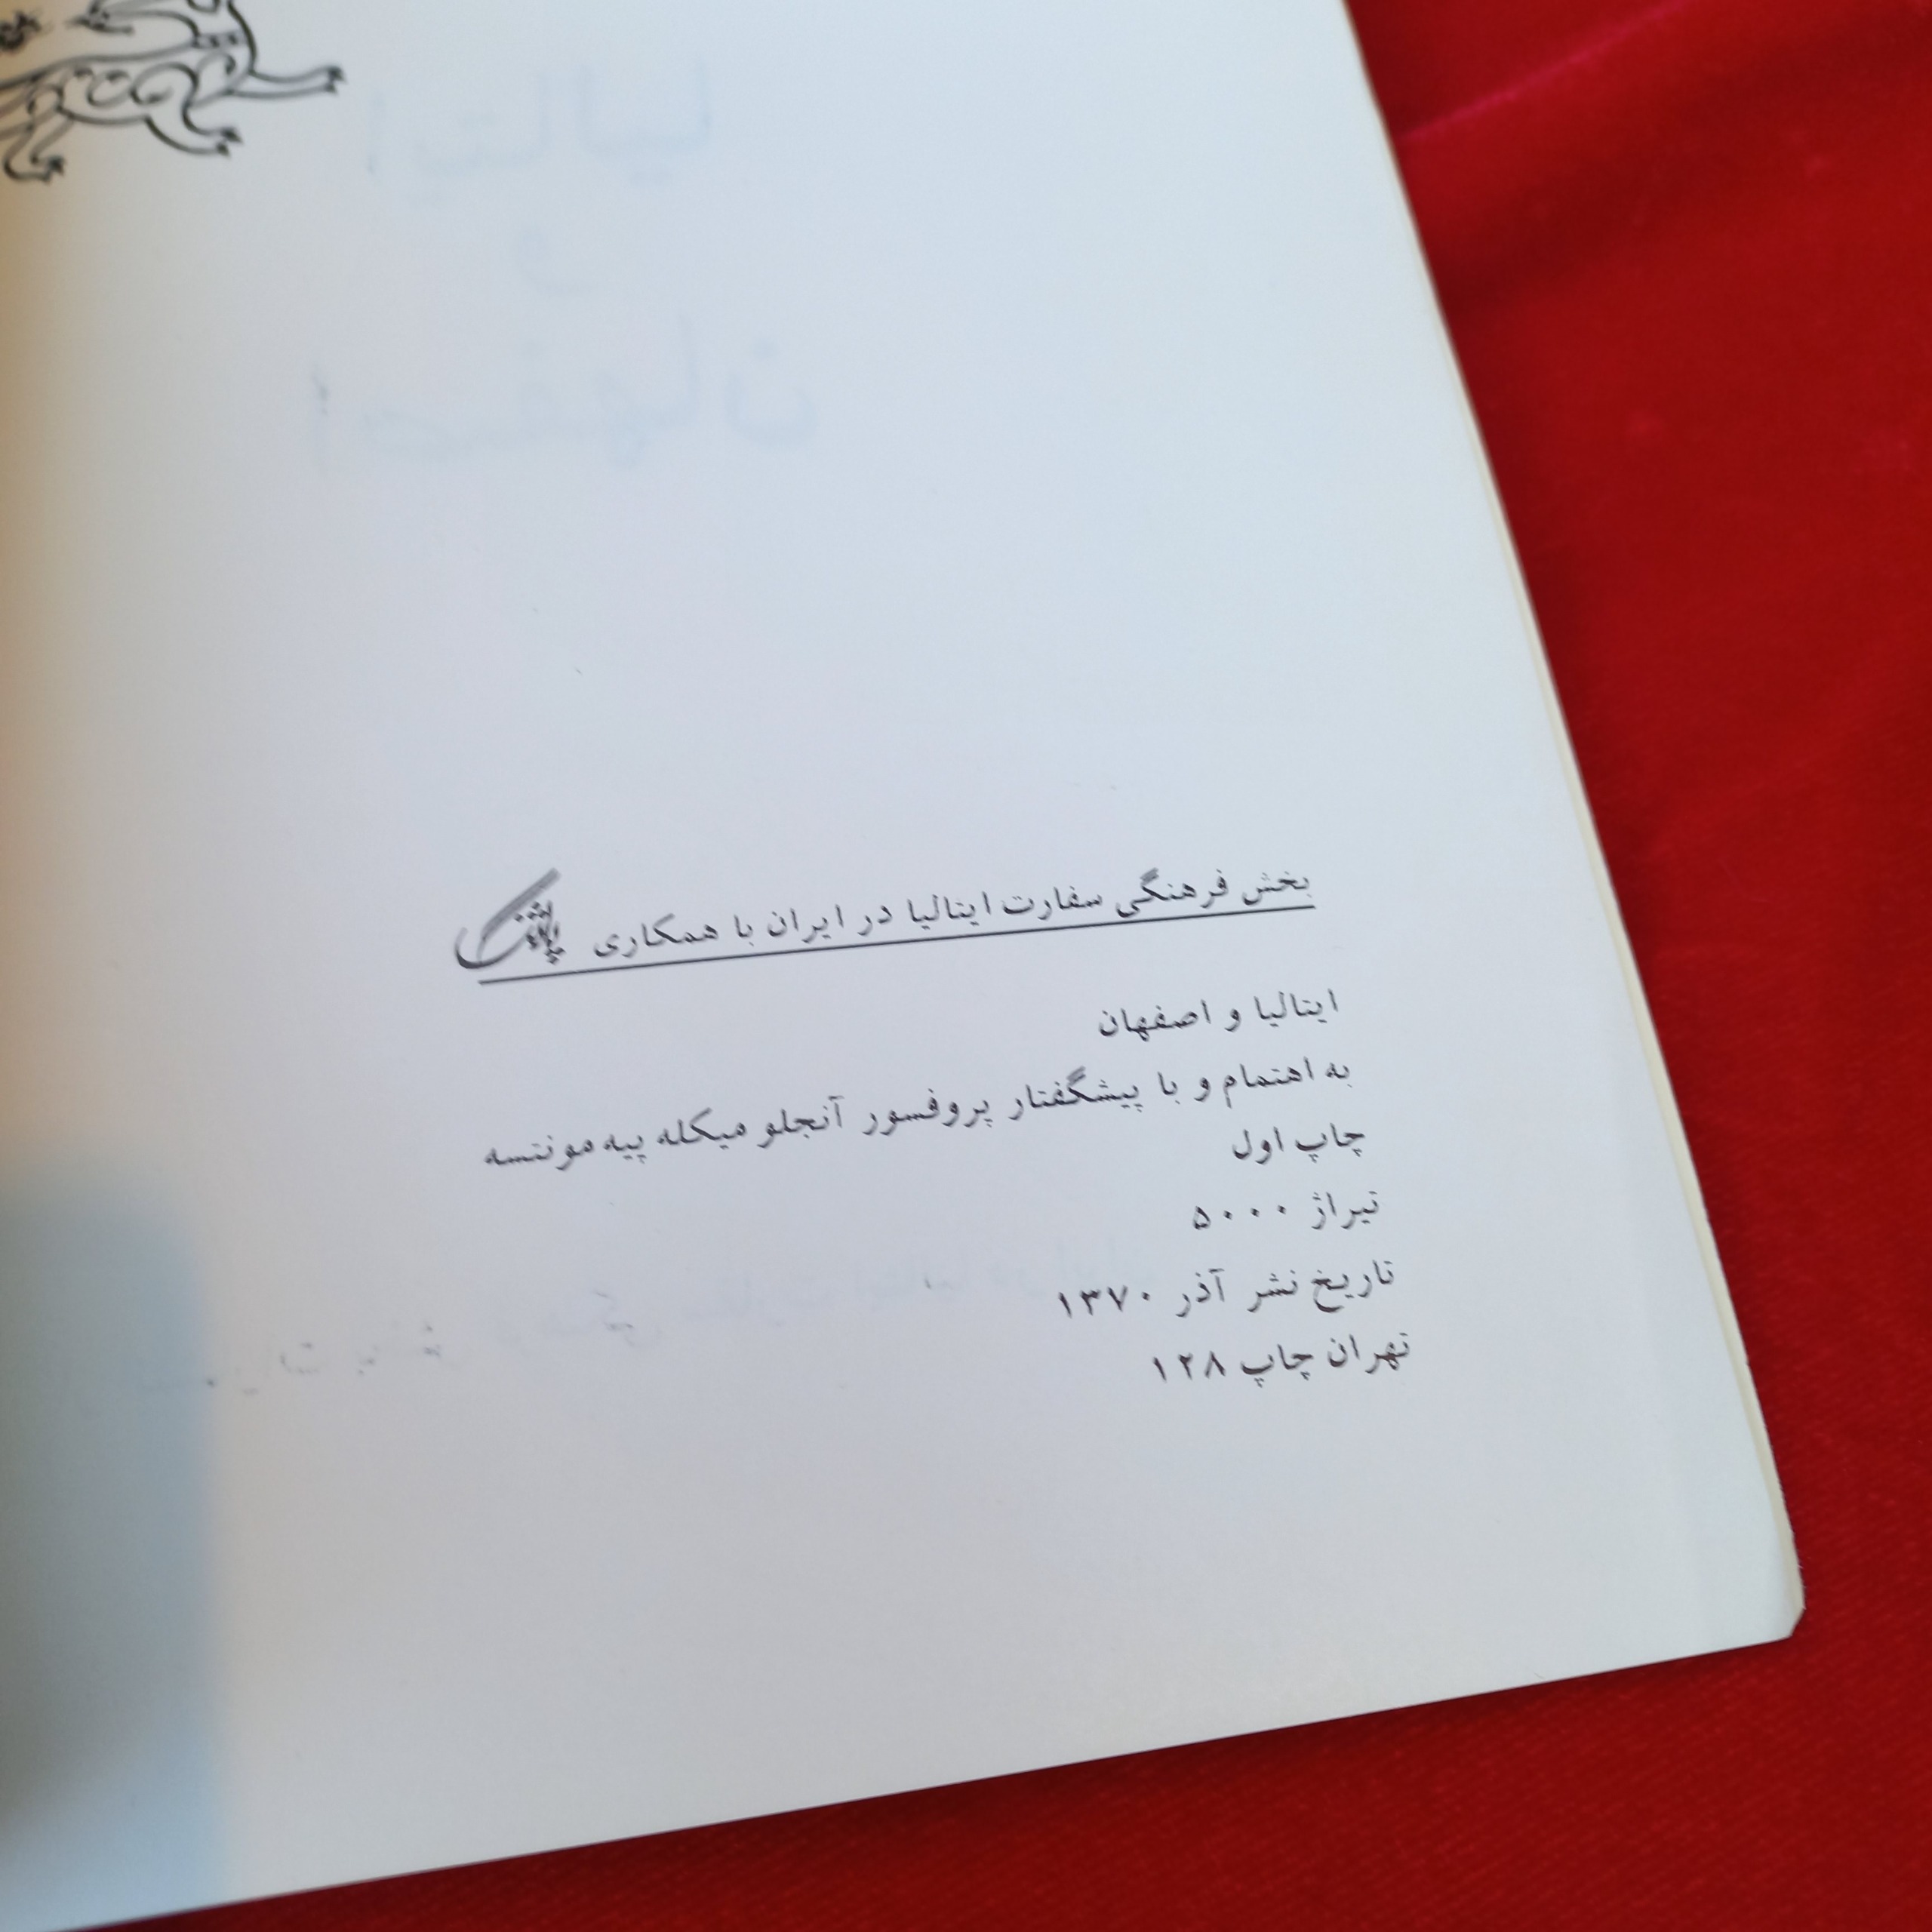 بخش فرهنگی سفارت ایتالیا در ایران با همکاری
ایتالیا و اصفهان
به اهتمام و با پیشگفتار پروفسور آنجلو میکله پیه مونتسه
چاپ اول
تیراژ ۵۰۰۰
تاریخ نشر آذر ۱۳۷۰
تهران چاپ ۱۲۸